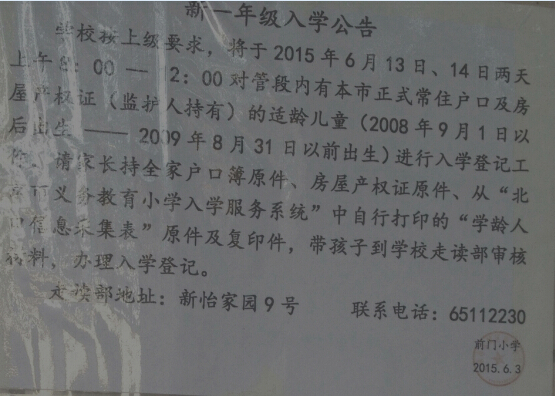 新一年级入学公告
学校按上级要求，将于2015年6月13日、14日两天
上午8：00—12：00对管段内有本市正式常住户口及房
屋产权证（监护人持有）的适龄儿童（2008年9月1日以
后出生——2009年8月31日以前出生）进行入学登记工
作，请家长持全家户口簿原件、房屋产权证原件、从“北
义务教育小学入学服务系统”中自行打印的“学龄人
口信息采集表”原件及复印件，带孩子到学校走读部审核
材料，办理入学登记。
走读部地址：新怡家园9号 联系电话：65112230
前门小学
2015.6.3